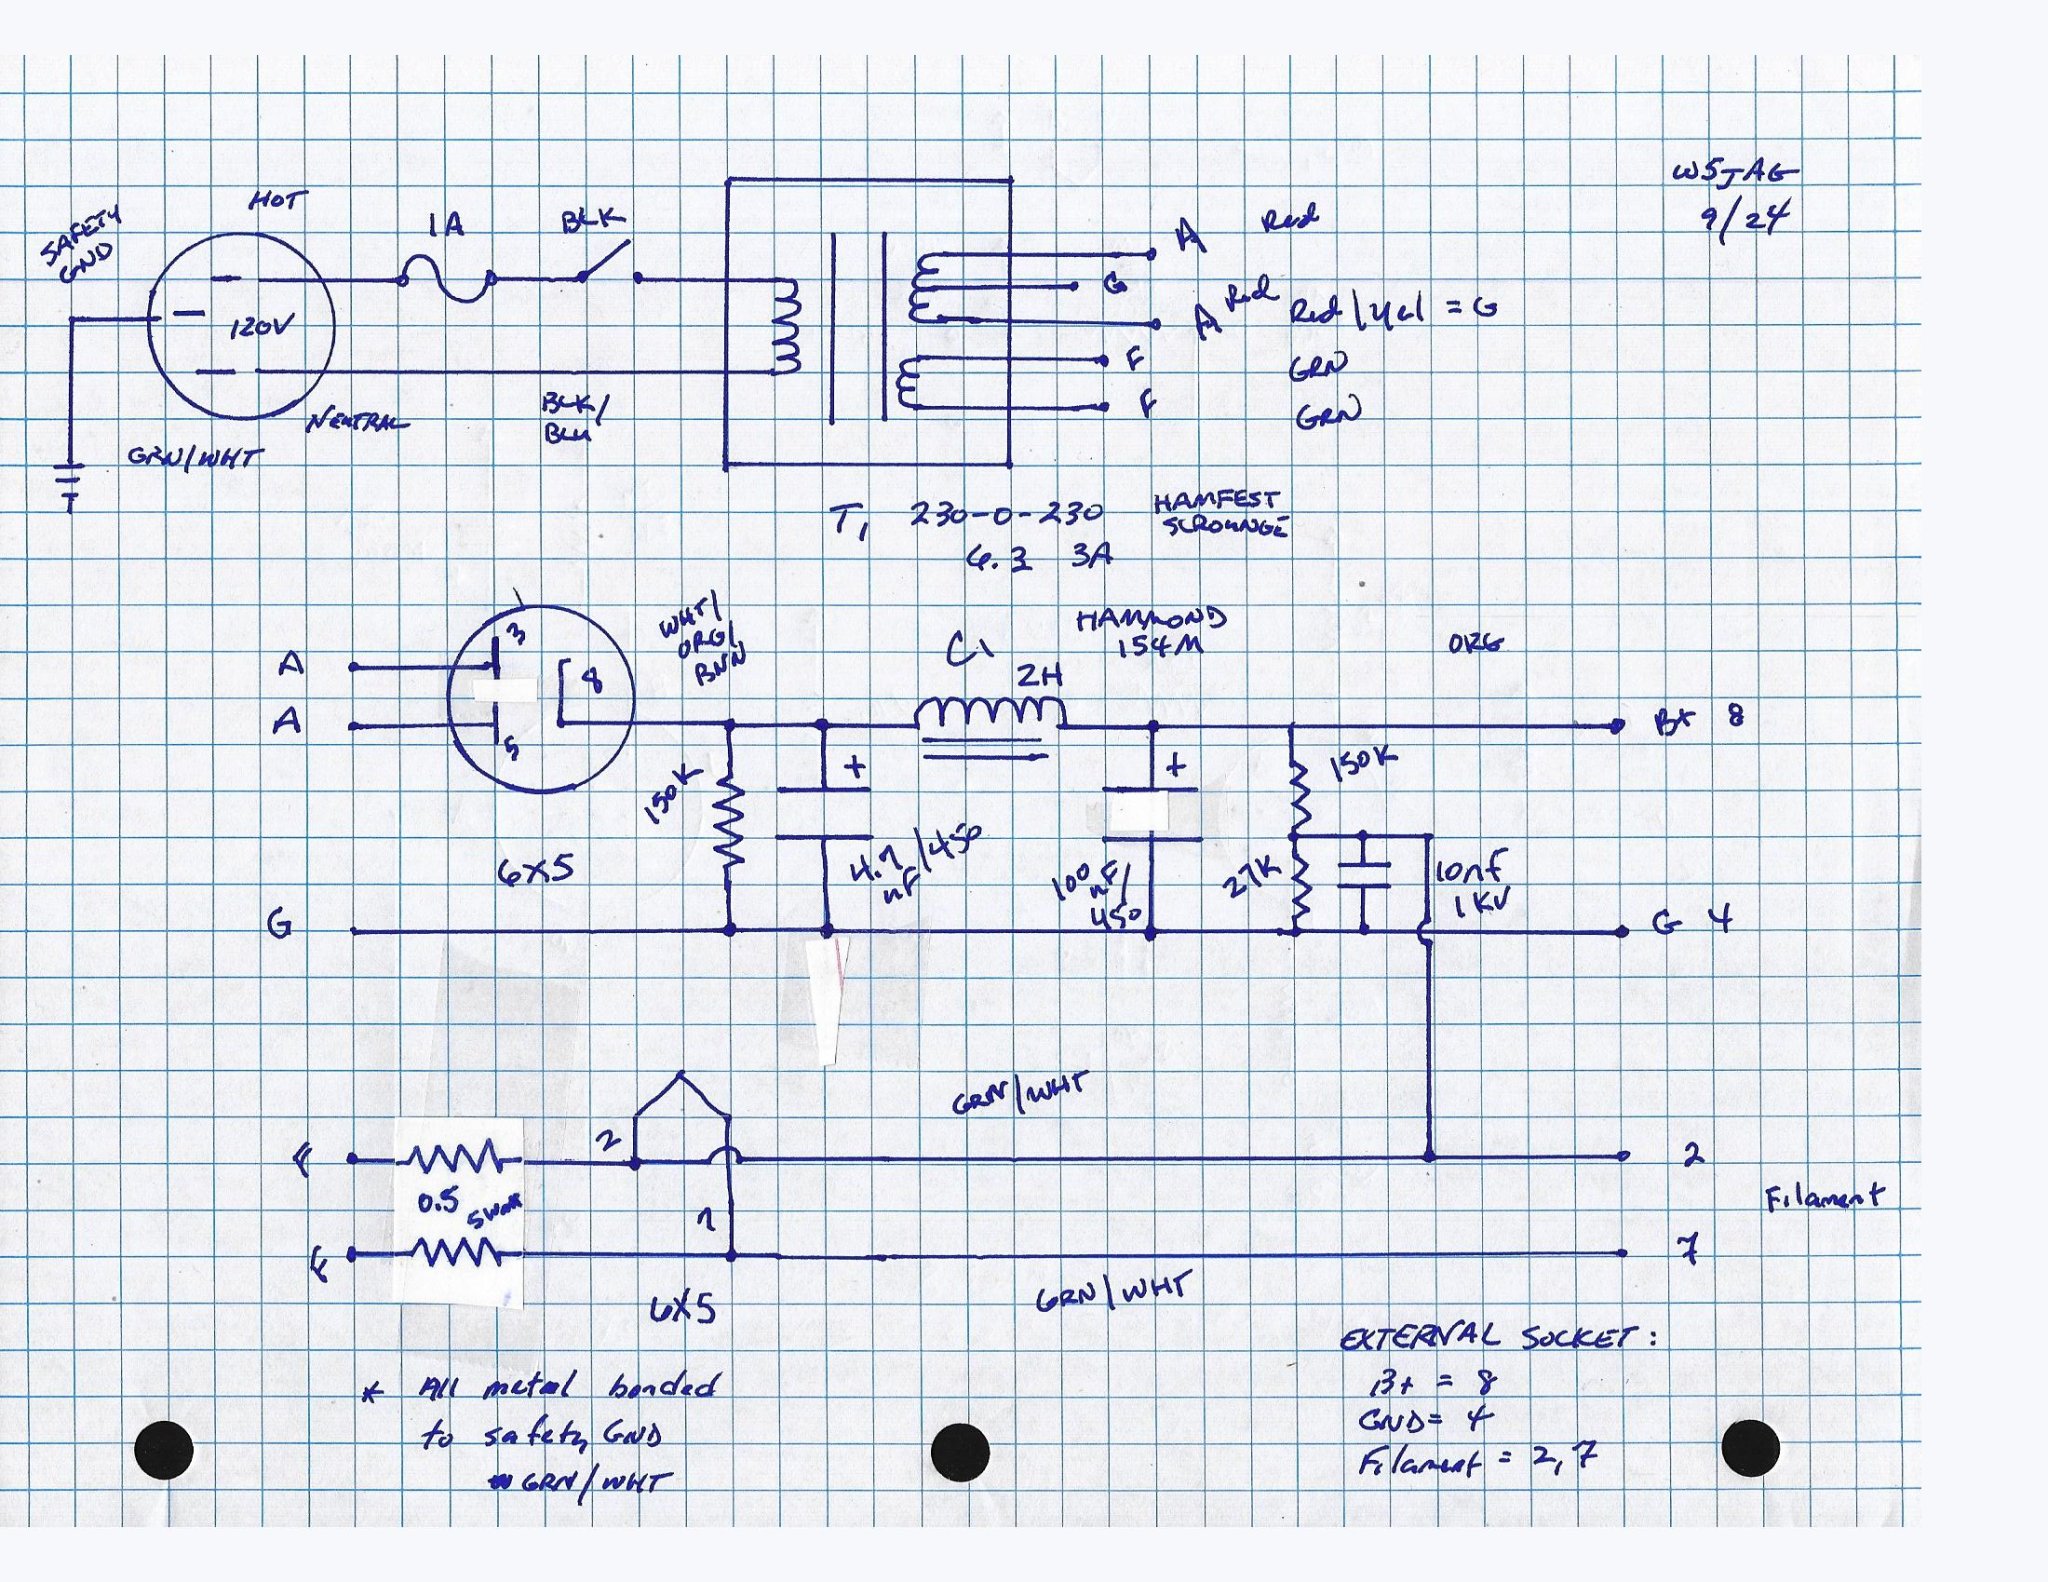 W5JAG
9/24
SAFETY
GND
HOT
1A
BLK
120V
NEUTRAL
GRN/WHT
BLK/
BLU
A Red
G
A Red
Red/Yel = G
F GRN
F GRN
T1 230-0-230
6.3 3A
HAMFEST
SCROUNGE
A
A
3
8
5
6X5
WHT/
ORG/
BRN
C1
2H
HAMMOND
154M
ORG
B+ 8
150K
+
4.7
uF/450
+
100
uF/
450
150K
27K
10nf
1KV
G
G 4
GRN/WHT
F
2
0.5 5Watt
7
F
6X5
GRN/WHT
2
Filament
7
* All metal bonded
to safety GND
GRN/WHT
EXTERNAL SOCKET:
B+ = 8
GND = 4
Filament = 2,7